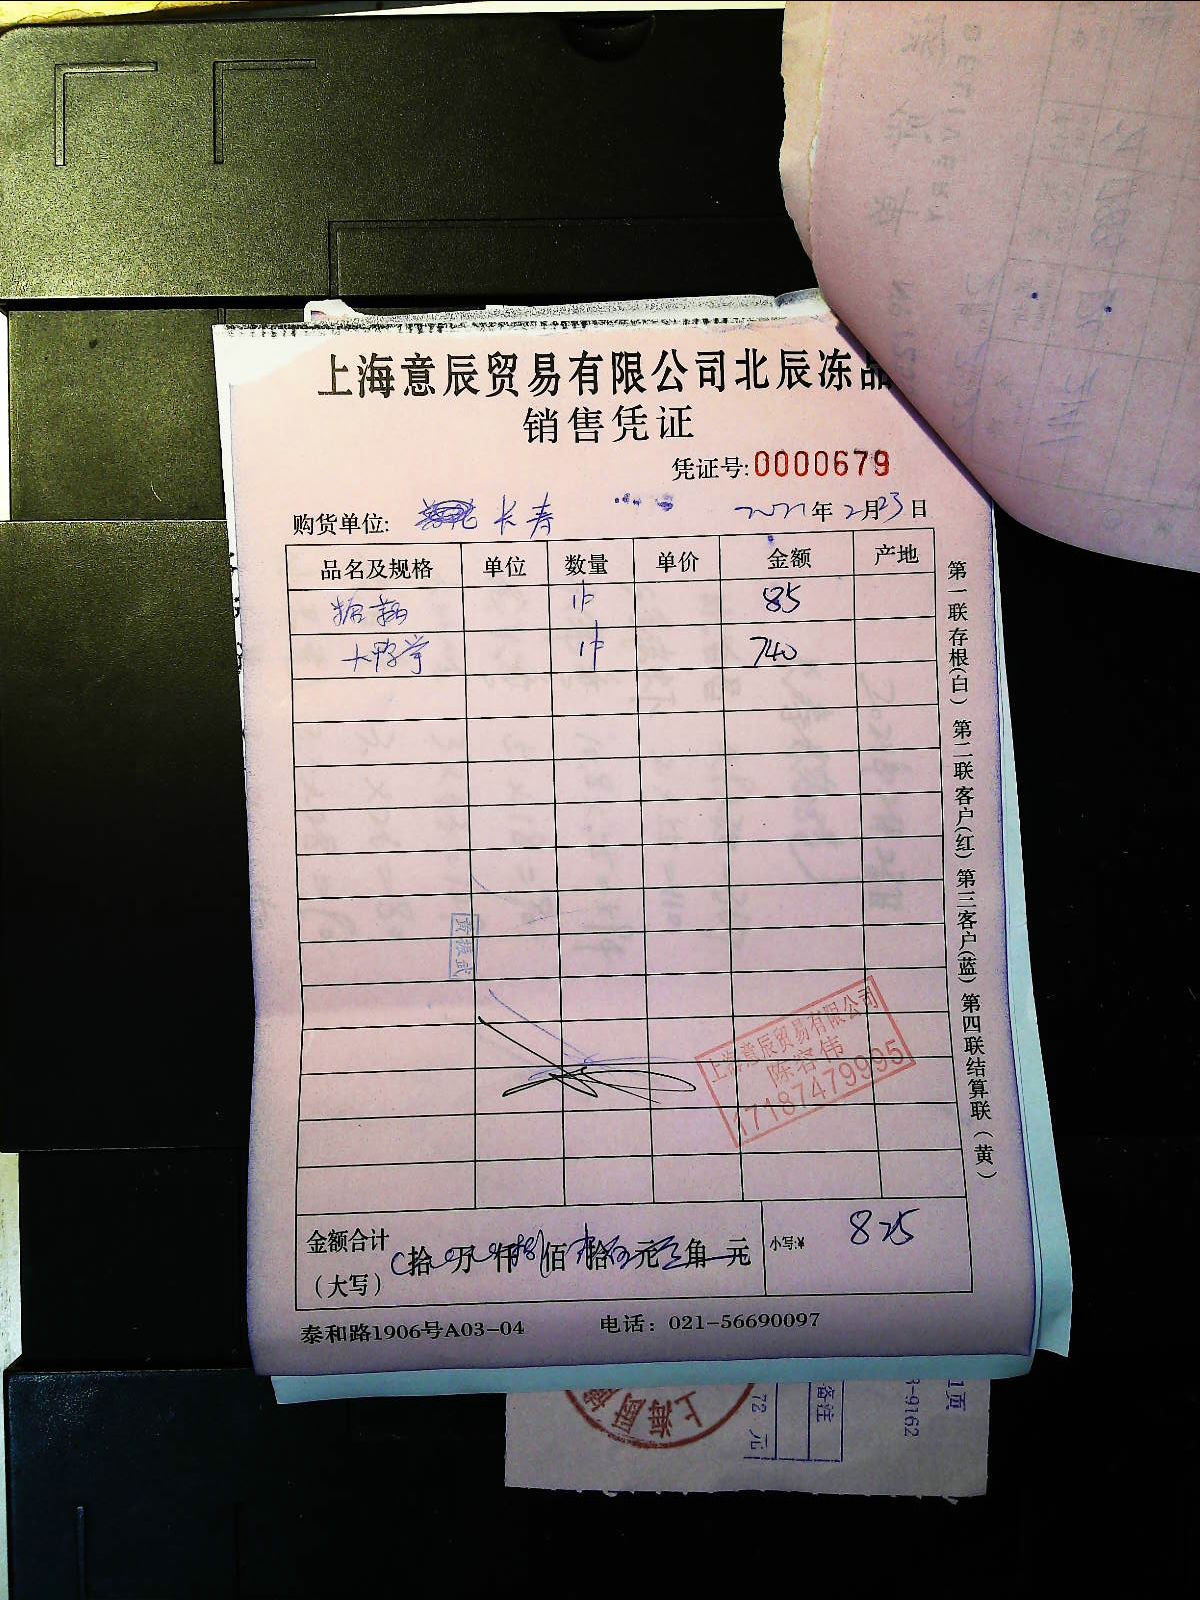 上海意辰贸易有限公司北辰冻品
销售凭证
凭证号:0000679
购货单位: 长寿 2021年2月23日
品名及规格 单位 数量 单价 金额 产地
糖藕 1件 85
大鸭掌 1件 740
第一联存根(白) 第二联客户(红) 第三客户(蓝) 第四联结算联(黄)
黄振武
上海意辰贸易有限公司
陈容伟
17187479995
金额合计
(大写) 拾 万 仟 佰 拾 元 角 元 小写:¥ 825
泰和路1906号A03-04 电话: 021-56690097
上海
72 元
备注
-9162
1页